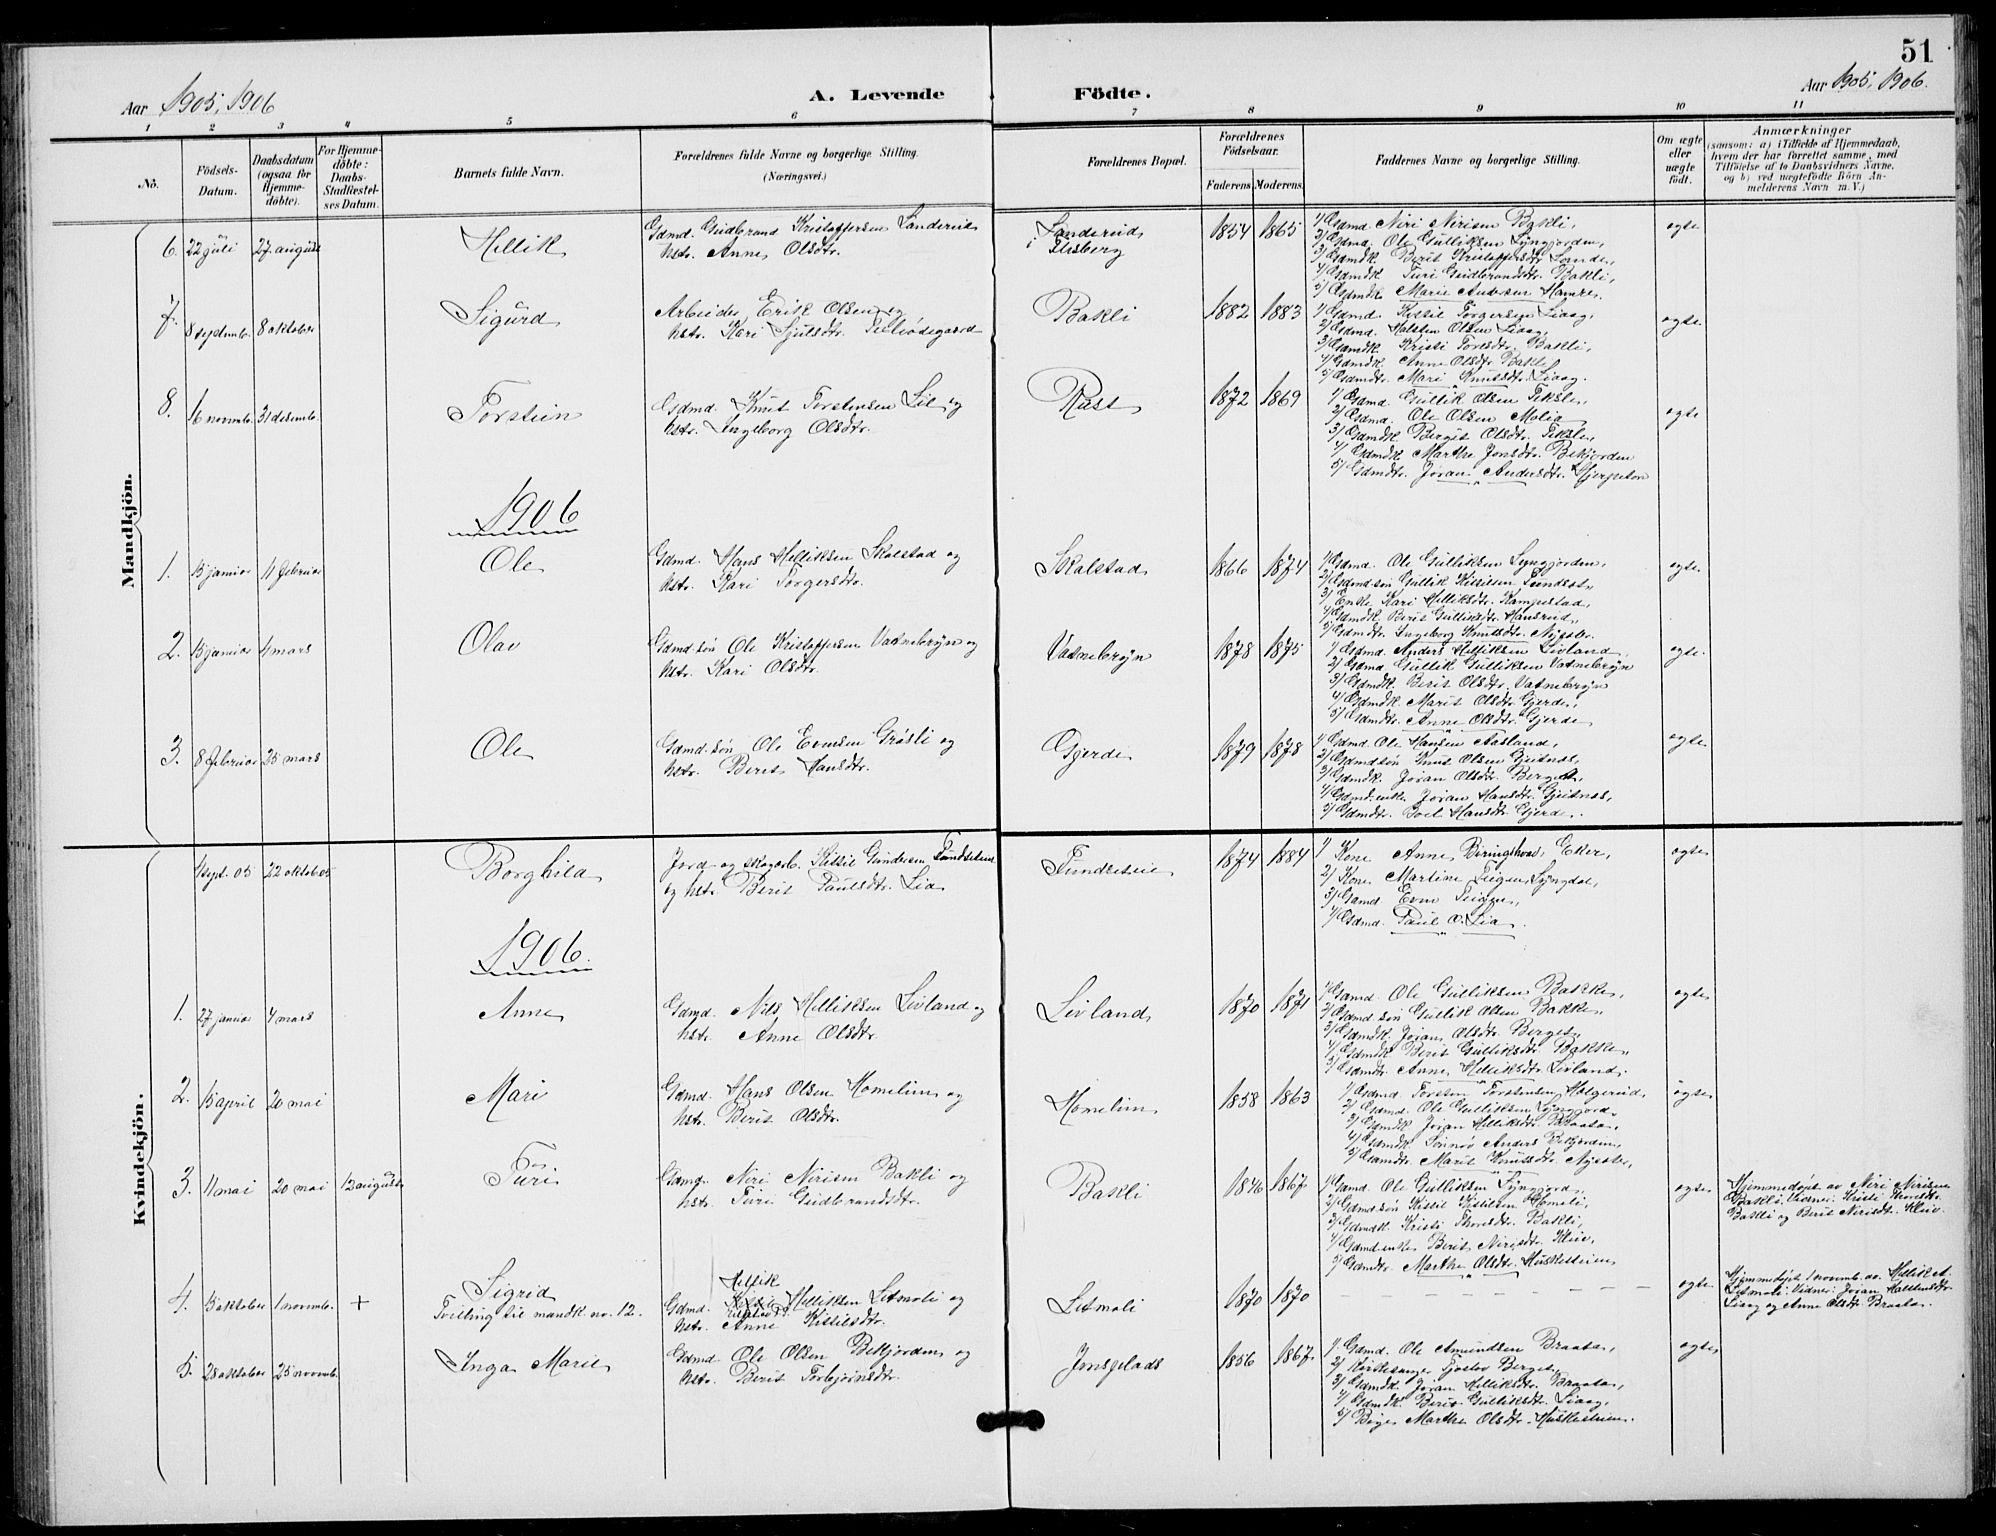 51
Aar 1905, 1906
A. Levende Födte.
Aar 1905, 1906.
1 2 3 4 5 6 7 8 9 10 11
No.
Födsels-
Datum.
Daabsdatum
(ogsaa for
Hjemme-
döbte).
For Hjemme-
döbte:
Daabs-
Stadfæstel-
ses Datum.
Barnets fulde Navn.
Forældrenes fulde Navne og borgerlige Stilling.
(Næringsvei.)
Forældrenes Bopæl.
Forældrenes
Födselsaar.
Faderens Moderens
Faddernes Navne og borgerlige Stilling.
Om ægte
eller
uægte
födt.
Anmærkninger
(saasom: a) i Tilfælde af Hjemmedaab,
hvem der har forrettet samme, med
Tilföielse af to Daabsvidners Navne,
og b) ved uægtefödte Börn An-
melderens Navn m. V.)
Mandkjön.
6. 22 juli 27 august Hellik
Gdmd. Gudbrand Kristoffersen Sanderud
hstr. Anne Olsdtr.
Sanderud
i Flesberg
1854 1865
1/ Gdmd. Niri Nirisen Bakli,
2/ Gdmd. Ole Gulliksen Lyngjorden,
3/ Gdmdk. Berit Kristoffersdtr.
4/ Gdmdk. Turi Gudbrandsdtr. Bakli,
5/ Gdmdk. Marie Andersen
ægte
7. 8 septemb. 8 oktober Sigurd
Arbeider Erik Olsen og
hstr. Kari
Bakli
1882 1883
1/ Gdmd. Kittil Torgersen Liaag,
2/ Gdmd. Halsten Olsen Liaag,
3/ Gdmdk. Kristi Toresdtr. Bakli,
4/ Gdmdk. Anne Olsdtr. Bakli
5/ Gdmdtr. Mari Knutsdtr. Liaag.
ægte
8. 16 novemb. 31 desemb. Torstein
Gdmd. Knut Torstensen Lie og
hstr. Ingeborg Olsdtr.
Rust
1872 1869
1/ Gdmd. Gullik Olsen Teksle,
2/ Gdmd. Ole Olsen Molia,
3/ Gdmdk. Bergit Olsdtr. Teksle,
4/ Gdmdk. Marthe Jonsdtr. Bekjorden
5/ Gdmdtr. Joran Andersdtr.
ægte
1906
1. 15 januar 11 februar Ole
Gdmd. Hans Helliksen Skalstad og
hstr. Kari Torgersdtr.
Skalstad
1866 1874
1/ Gdmd. Ole Gulliksen Lyngjorden,
2/ Gdmd.søn Gullik Kittilsen
3/ Enke Kari Helliksdtr. Kampestad,
4/ Gdmdk. Berit Gulliksdtr. Hansrud,
5/ Gdmdtr. Ingeborg Knutsdtr.
ægte
2. 15 januar 4 mars Olav
Gdmd.søn Ole Kristoffersen Vatnebryn og
hstr. Kari Olsdtr.
Vatnebryn
1878 1875
1/ Gdmd. Anders Helliksen Livland,
2/ Gdmd. Gullik Gulliksen Vatnebryn
3/ Gdmdk. Berit Olsdtr. Vatnebryn
4/ Gdmdk. Marit Olsdtr. Gjerde,
5/ Gdmdtr. Anne Olsdtr. Gjerde
ægte
3. 8 februar 25 mars Ole
Gdmd.søn Ole Evensen Grøsli og
hstr. Berit Hansdtr.
Gjerde
1879 1878
1/ Gdmd. Ole Hansen Aasland,
2/ Gdmd.søn Knut Olsen Gjeitnes,
3/ Gdmdk. Joran Olsdtr. Berget,
4/ Gdmd.enke Joran Hansdtr. Gjeitnes,
5/ Gdmdtr. Boel Hansdtr. Gjerde.
ægte
Kvindekjön.
4 sept. 05 22 oktob. 05 Borghild
Jord- og skogarb. Kittil Gundersen Fundseteie
og hst. Berit Paulsdtr. Lia
Fundseteie
1874 1884
1/ Kone Anne Beringskoved, Eker,
2/ Kone Martine Teigen, Lyngdal,
3/ Gdmd. Even Teigen,
4/ Gdmd. Paul O. Lia.
ægte
1906.
1. 27 januar 4 mars Anne
Gdmd. Nils Helliksen Livland og
hstr. Anne Olsdtr.
Livland
1870 1871
1/ Gdmd. Ole Gulliksen Bakke,
2/ Gdmd.søn Gullik Olsen Bakke,
3/ Gdmdk. Joran Olsdtr. Berget,
4/ Gdmdk. Berit Gulliksdtr. Bakke,
5/ Gdmdtr. Anne Helliksdtr. Livland.
ægte
2. 15 april 20 mai Mari
Gdmd. Hans Olsen Homelien og
hstr. Berit Olsdtr.
Homelien
1858 1863
1/ Gdmd. Torsten Torstensen Holgerud,
2/ Gdmd. Ole Gulliksen Lyngjord,
3/ Gdmdk. Joran Helliksdtr. Braata,
4/ Gdmdk. Sønnøv Anders Bekjorden,
5/ Gdmdtr. Marit Knutsdtr.
ægte
3. 11 mai 20 mai 12 august Turi
Gdmd. Niri Nirisen Bakli og
hstr. Turi Gudbrandsdtr.
Bakli
1846 1867
1/ Gdmd. Ole Gulliksen Lyngjord,
2/ Gdmd.søn Kittil Kittilsen Homeli,
3/ Gdmdk. Kristi Thoresdtr. Bakli,
4/ Gdmd.enke Berit Nirisdtr. Kleiv,
5/ Gdmdtr. Marthe Olsdtr.
ægte
Hjemmedøpt av Niri Nirisen
Bakli. Vidner: Kristi Thoresdtr.
Bakli og Berit Nirisdtr. Kleiv.
4. 15 oktober 1 novemb. + Sigrid
Tvilling til mandk. no. 12.
Hellik
Gdmd. Helliksen Litmoli og
hstr. Anne Kittilsdtr.
Litmoli
1870 1870
ægte
Hjemmedøpt 1 novemb. av Hellik H.
Litmoli. Vidner: Joran Halstensdtr.
Liaag og Anne Olsdtr. Braata.
5. 28 oktober 25 novemb. Inga Marie
Gdmd. Ole Olsen Bekjorden og
hstr. Berit Torbjørnsdtr.
Jonsplads
1856 1867
1/ Gdmd. Ole Amundsen Braata,
2/ Kirkesanger Tjostov Berget,
3/ Gdmdk. Joran Helliksdtr. Braata,
4/ Gdmdk. Berit Gulliksdtr. Liaag,
5/ Pige Marthe Olsdtr.
ægte